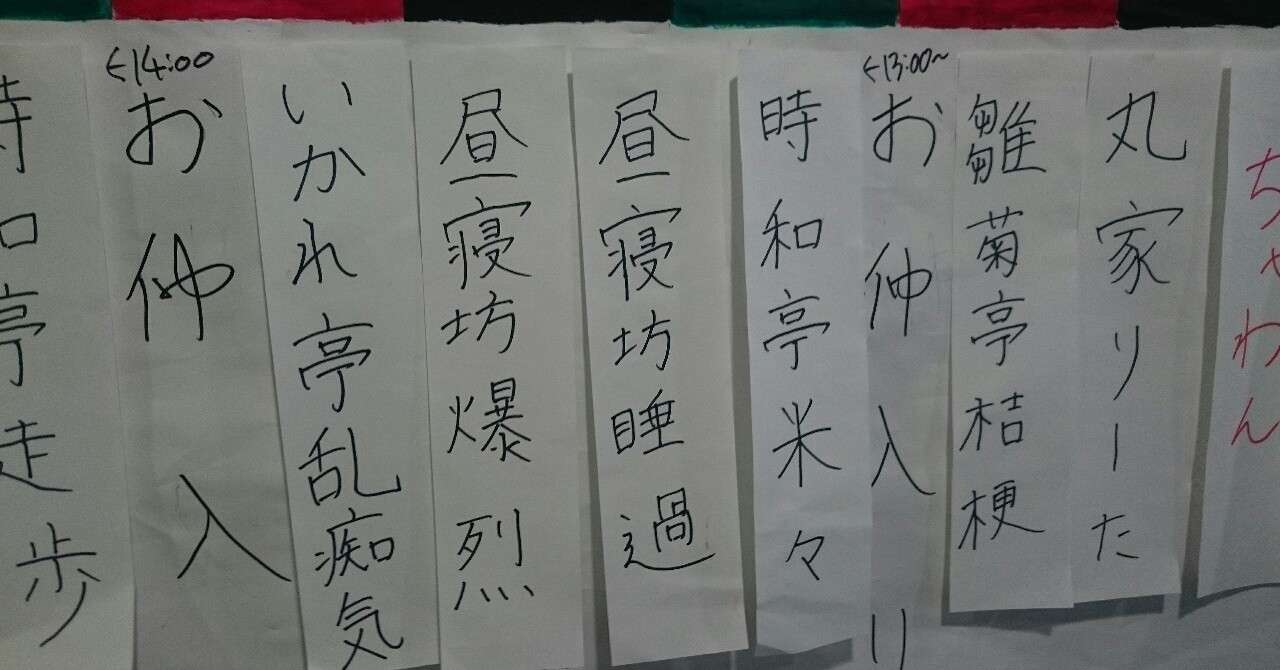 ちゃわん
丸家リーた
雛菊亭桔梗
←13:00~
お仲入り
時和亭米々
昼寝坊睡過
昼寝坊爆烈
いかれ亭乱痴気
←14:00
お仲入
時和亭走歩